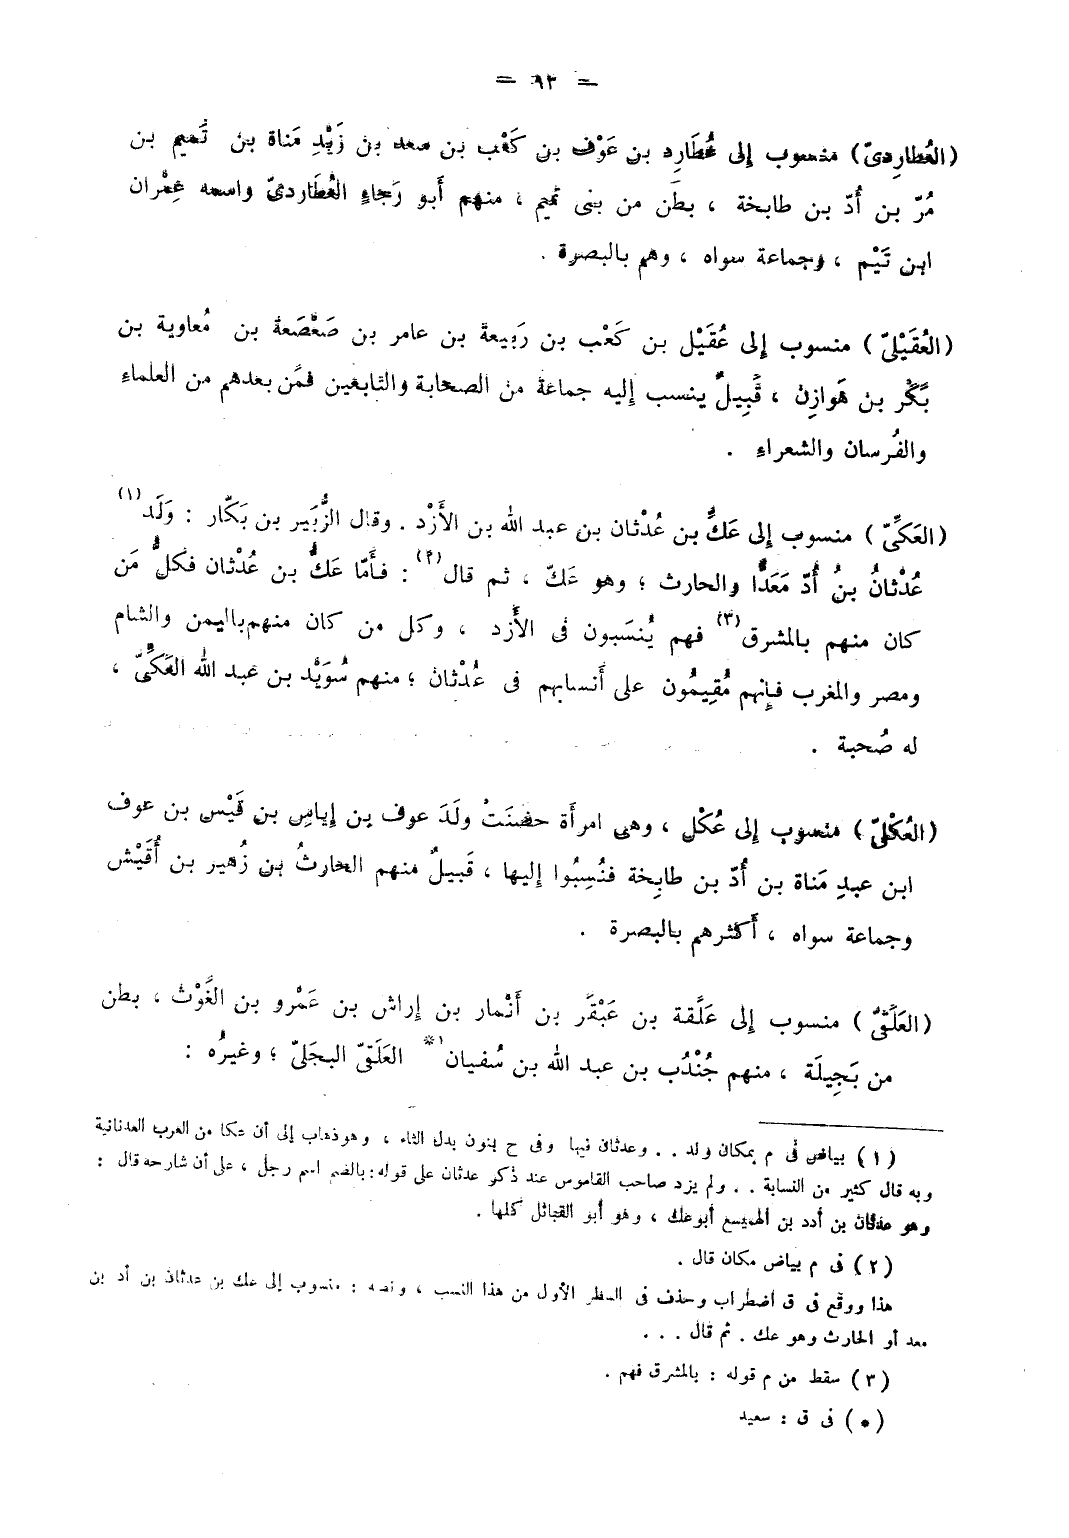 = ٩٣ =
(العُطارِدىّ) منسوب إلى عُطَارِد بن عَوْف بن كَعْب بن سعد بن زَيْدِ مَناة بن تَميم بن
مُرّ بن أُدّ بن طابخة ، بطن من بنى تميم ، منهم أَبو رَجاءٍ العُطَاردىّ واسمه عِمْران
ابن تَيْم ، وجماعة سواه ، وهم بالبصرة .
(العُقَيْلىّ) منسوب إلى عُقَيْل بن كَعْب بن رَبيعة بن عامر بن صَعْصَعة بن مُعاوية بن
بَكْر بن هَوازِن ، قَبِيلٌ ينسب إليه جماعة من الصحابة والتابعين فمَن بعدهم من العلماءِ
والفُرسان والشعراءِ .
(العَكِّىّ) منسوب إلى عَكِّ بن عُدْثان بن عبد الله بن الأَزْد . وقال الزُّبَير بن بَكّار : وَلَد(١)
عُدْثانُ بنُ أُدّ مَعَدًّا والحارث ؛ وهو عَكّ ، ثم قال(٢) : فأَمّا عَكُّ بن عُدْثان فكلُّ مَن
كان منهم بالمشرق(٣) فهم يُنسَبون فى الأَزد ، وكل من كان منهم باليمن والشام
ومصر والمغرب فإنهم مُقِيمُون على أَنسابهم فى عُدْثان ؛ منهم سُوَيْد بن عبد الله العَكِّىّ ،
له صُحبة .
(العُكْلىّ) منسوب إلى عُكْل ، وهى امرأَة حضنَتْ ولَدَ عوف بن إياسِ بن قَيْس بن عوف
ابن عبدِ مَناة بن أُدّ بن طابِخة فنُسِبُوا إليها ، قَبيلٌ منهم الحارثُ بن زُهير بن أُقَيْش
وجماعة سواه ، أَكثرهم بالبصرة .
(العَلَقىّ) منسوب إلى عَلَقة بن عَبْقَر بن أَنْمار بن إراش بن عَمْرو بن الغَوْث ، بطن
من بَجِيلَة ، منهم جُنْدُب بن عبد الله بن سُفيان* العَلَقىّ البجَلىّ ؛ وغيرُه :
(١) بياض فى م بمكان ولد . . وعدثان فيها وفى ح بنون بدل الثاء ، وهو ذهاب إلى أن عكا من العرب العدنانية
وبه قال كثير من النسابة . . ولم يزد صاحب القاموس عند ذكر عدثان على قوله : بالضم اسم رجل ، على أن شارحه قال :
وهو عدثان بن أدد بن الهميسع أبو عك ، وهو أبو القبائل كلها .
(٢) فى م بياض مكان قال .
هذا ووقع فى ق اضطراب وحذف فى السطر الأول من هذا النسب ، ونصه : منسوب إلى عك بن عدثان بن أد بن
معد أو الحارث وهو عك . ثم قال . . .
(٣) سقط من م قوله : بالمشرق فهم .
(*) فى ق : سعيد